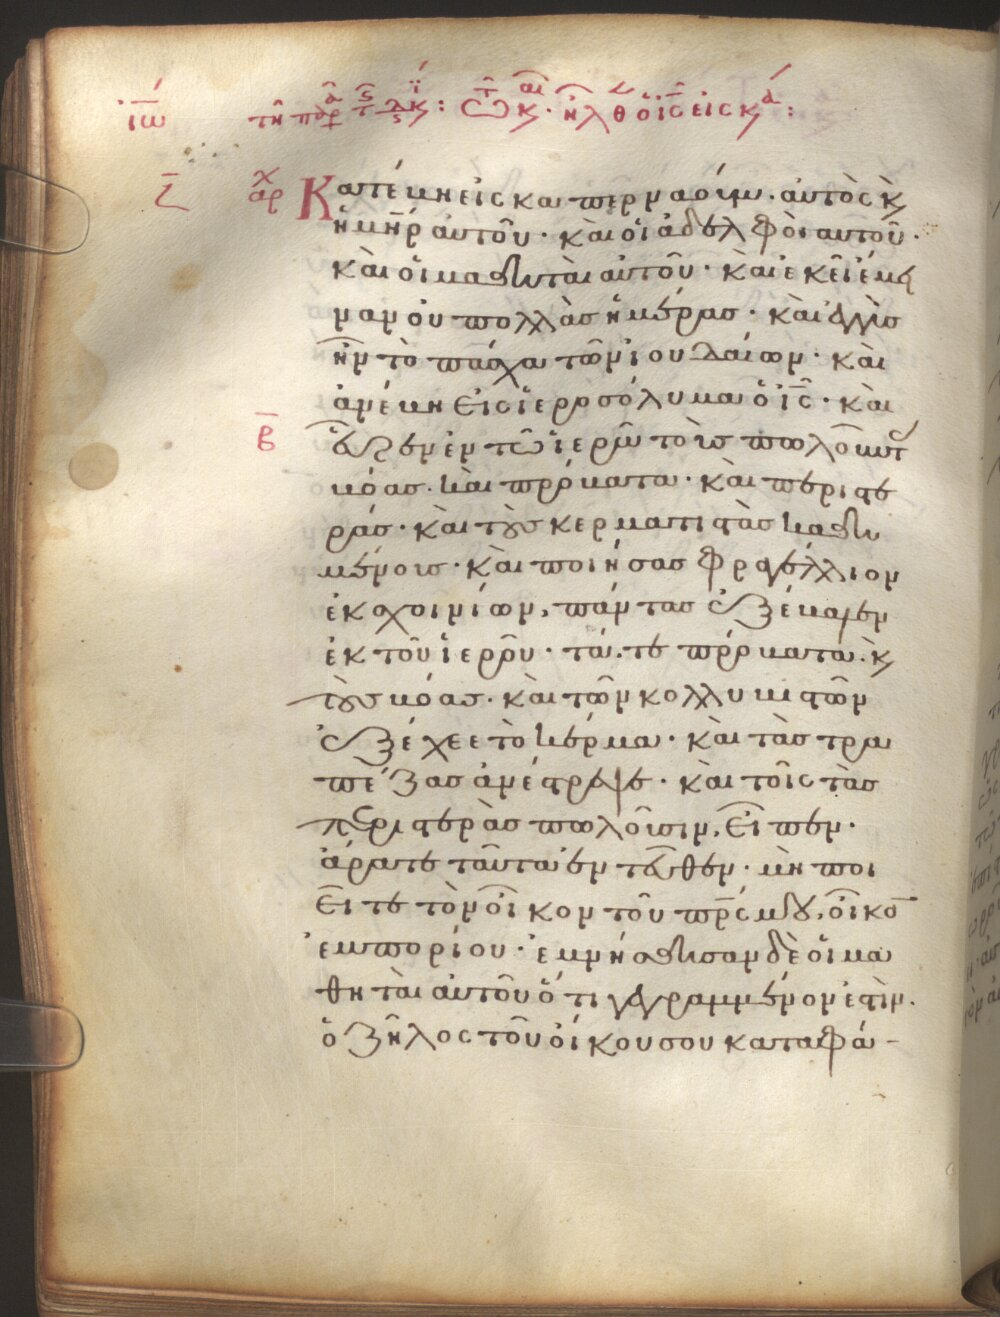 ζ αρχ Κατέβη εἰς καπερναούμ· αὐτὸς κ
ἡ μηρ αὐτοῦ· καὶ οἱ ἀδελφοὶ αὐτοῦ·
καὶ οἱ μαθηταὶ αὐτοῦ· καὶ ἐκεῖ ἔμει
ναν οὐ πολλὰς ἡμέρας· καὶ ἐγγὺς
ἦν τὸ πάσχα τῶν ἰουδαίων· καὶ
ἀνέβη εἰς ἱεροσόλυμα ὁ ις· καὶ
β εὗρεν ἐν τῶ ἱερῶ τοὺς πωλοῦντ
βόας· καὶ πρόβατα· καὶ περιστε
ράς· καὶ τοὺς κερματιστὰς καθη
μένους· καὶ ποιήσας φραγέλλιον
ἐκ σχοινίων, πάντας ἐξέβαλεν
ἐκ τοῦ ἱεροῦ· τά τε πρόβατα· κ
τοὺς βόας· καὶ τῶν κολλυβιστῶν
ἐξέχεε τὸ κέρμα· καὶ τὰς τρα
πέζας ἀνέστρεψε· καὶ τοῖς τὰς
περιστερὰς πωλοῦσιν, εἶπεν·
ἄρατε ταῦτα ἐντεῦθεν· μὴ ποι
εῖτε τὸν οἶκον τοῦ πρς μου, οἶκο
ἐμπορίου· ἐμνήσθησαν δὲ οἱ μα
θηταὶ αὐτοῦ ὅτι γεγραμμένον ἐστὶν·
ὁ ζῆλος τοῦ οἴκου σου καταφά